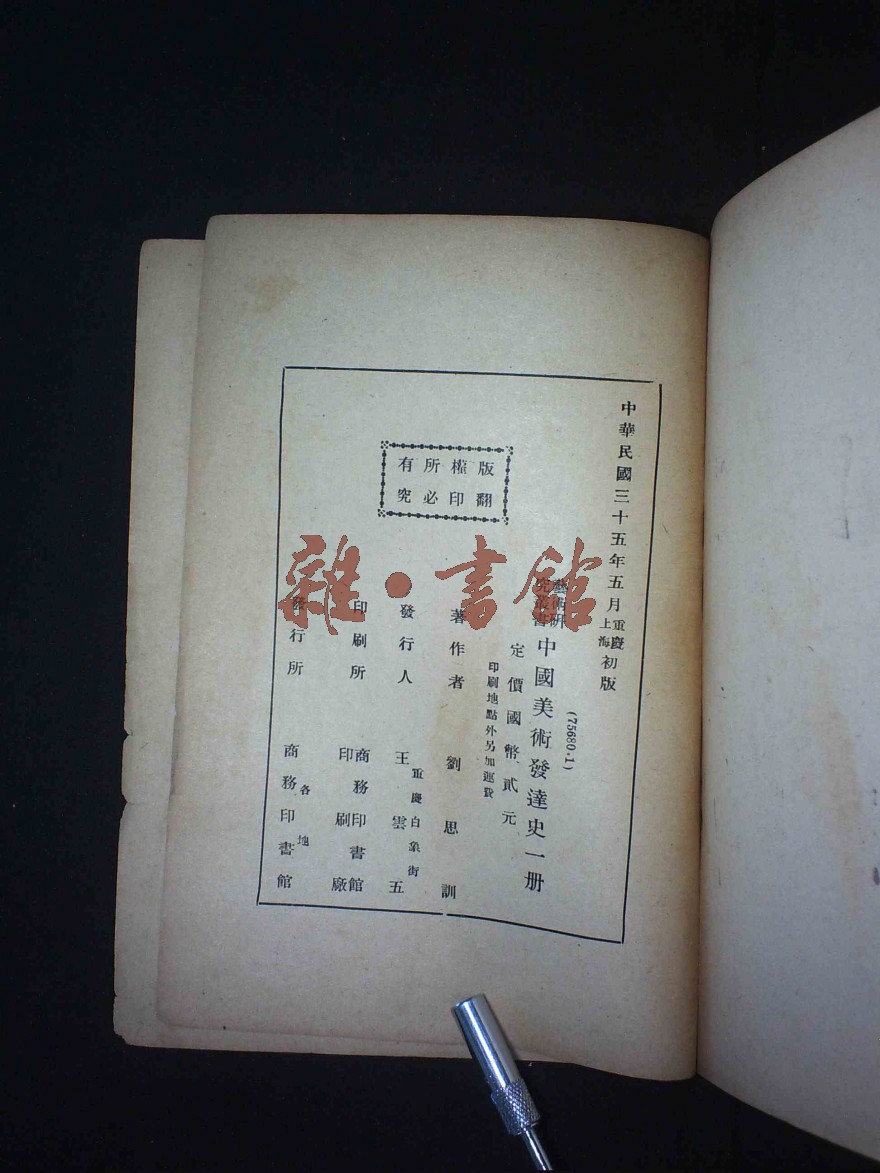 中華民國三十五年五月重慶初版
上海
(75680.1)
藝術研究叢書 中國美術發達史一册
定價國幣貳元
印刷地點外另加運費
版權所有
翻印必究
著作者 劉思訓
重慶白象街
發行人 王雲五
印刷所 商務印書館印刷廠
發行所 各地商務印書館
雜·書館